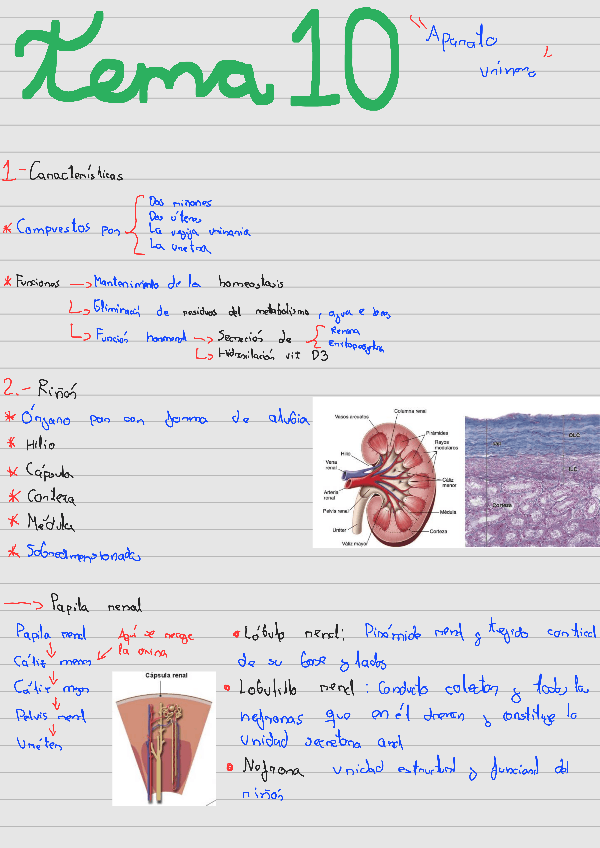 Tema 10
"Aparato
urinario"
1.- Características
* Compuestos por
Dos riñones
Dos úteres
La vejiga urinaria
La uretra
* Funciones → Mantenimiento de la homeostasis
↳ Eliminación de residuos del metabolismo, agua e iones
↳ Función hormonal → Secreción de
Renina
Eritropoyetina
↳ Hidroxilación vit D3
2.- Riñón
* Órgano par con forma de alubia
* Hilio
* Cápsula
* Corteza
* Médula
Vasos arcuatos
Columna renal
Pirámides
Rayos
medulares
Hilio
Vena
renal
Arteria
renal
Pelvis renal
Uréter
Váliz mayor
Cáliz
menor
Médula
Corteza
OLC
ILC
Corteza
→ Papila renal
Papila renal
Aquí se recoge
la orina
Cáliz menor
Cáliz mayor
Pelvis renal
Uréter
Cápsula renal
• Lóbulo renal: Pirámide renal y tejido cortical
de su base y lados
• Lobulillo renal: Conducto colector y todas las
nefronas que en él drenan y constituye la
unidad secretora
• Nefrona unidad estructural y funcional del
riñón